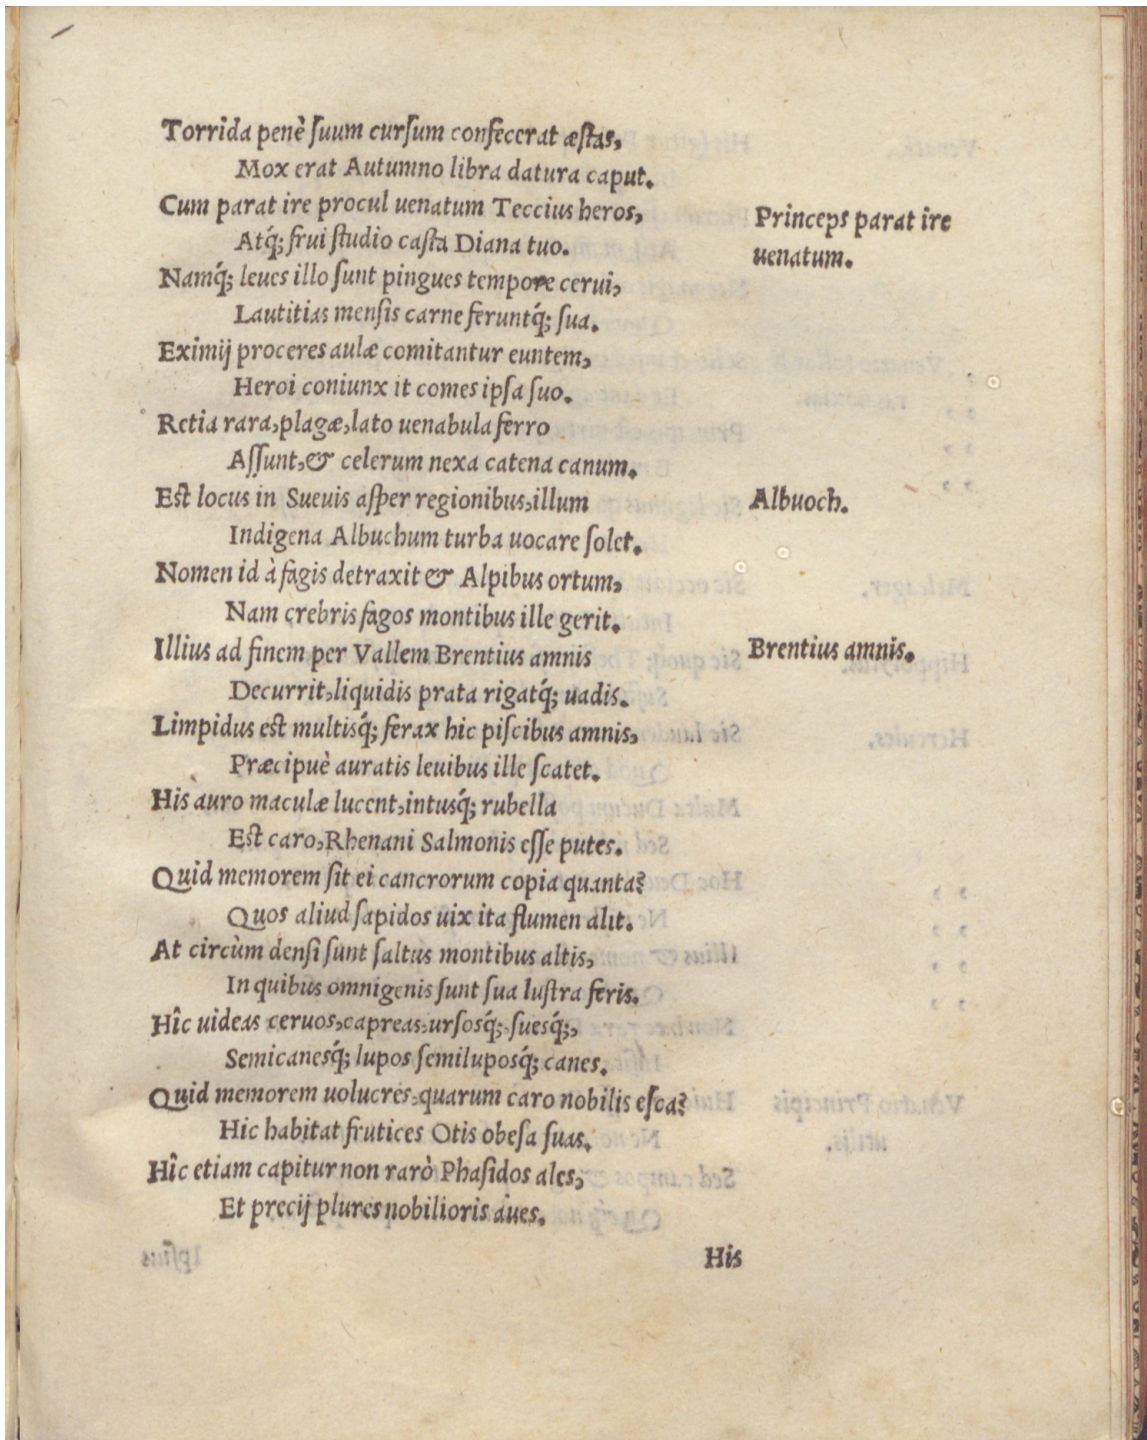 Torrida penè ſuum curſum confecerat æſtas,
Mox erat Autumno libra datura caput.
Cum parat ire procul uenatum Teccius heros,
Princeps parat ire
Atq́; frui ſtudio caſta Diana tuo.
uenatum.
Namq́; leues illo ſunt pingues tempore cerui,
Lautitias menſis carne feruntq́; ſua.
Eximij proceres aulæ comitantur euntem,
Heroi coniunx it comes ipſa ſuo.
Retia rara, plagæ, lato uenabula ferro
Aſſunt, & celerum nexa catena canum.
Est locus in Sueuis aſper regionibus, illum
Albuoch.
Indigena Albuchum turba uocare ſolet.
Nomen id à fagis detraxit & Alpibus ortum,
Nam crebris fagos montibus ille gerit.
Illius ad finem per Vallem Brentius amnis
Brentius amnis.
Decurrit, liquidis prata rigatq́; uadis.
Limpidus est multisq́; ferax hic piſcibus amnis,
Præcipuè auratis leuibus ille ſcatet.
His auro maculæ lucent, intusq́; rubella
Est caro, Rhenani Salmonis eſſe putes.
Quid memorem ſit ei cancrorum copia quanta?
Quos aliud ſapidos uix ita flumen alit.
At circùm denſi ſunt ſaltus montibus altis,
In quibus omnigenis ſunt ſua luſtra feris.
Hîc uideas ceruos, capreas, urſosq́;, ſuesq́;,
Semicanesq́; lupos ſemiluposq́; canes.
Quid memorem uolucres, quarum caro nobilis eſca?
Hic habitat frutices Otis obeſa ſuas.
Hîc etiam capitur non rarò Phaſidos ales,
Et precij plures nobilioris aues.
His